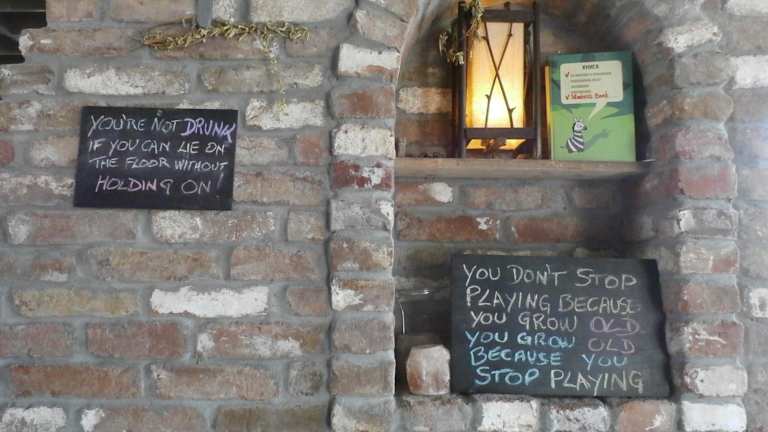 YOU'RE NOT DRUNK
IF YOU CAN LIE ON
THE FLOOR WITHOUT
HOLDING ON
YOU DON'T STOP
PLAYING BECAUSE
YOU GROW OLD.
YOU GROW OLD
BECAUSE YOU
STOP PLAYING